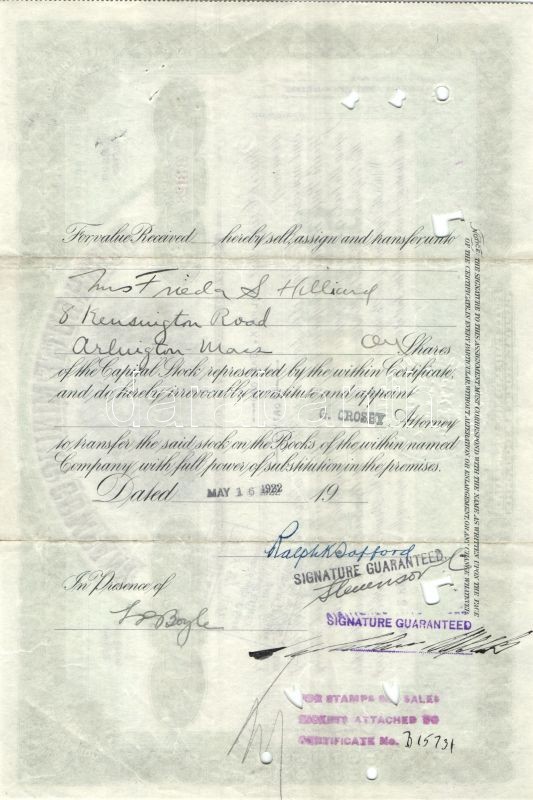 For value Received hereby sell, assign and transfer unto
Mrs Frieda S Hilliard
8 Kensington Road
Arlington Mass Shares
of the Capital Stock represented by the within Certificate,
and do hereby irrevocably constitute and appoint
G. CROSBY Attorney
to transfer the said stock on the Books of the within named
Company with full power of substitution in the premises.
Dated MAY 16 1922 19
Ralph K Safford
SIGNATURE GUARANTEED
In Presence of
SIGNATURE GUARANTEED
Boyle
FOR STAMPS SALES
TICKETS ATTACHED TO
CERTIFICATE No. B15731
NOTICE: THE SIGNATURE TO THIS ASSIGNMENT MUST CORRESPOND WITH THE NAME AS WRITTEN UPON THE FACE
OF THE CERTIFICATE IN EVERY PARTICULAR WITHOUT ALTERATION OR ENLARGEMENT OR ANY CHANGE WHATEVER